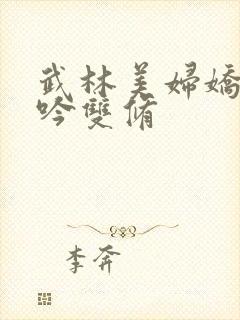 武林美婦嬌
吟雙脩
李奔